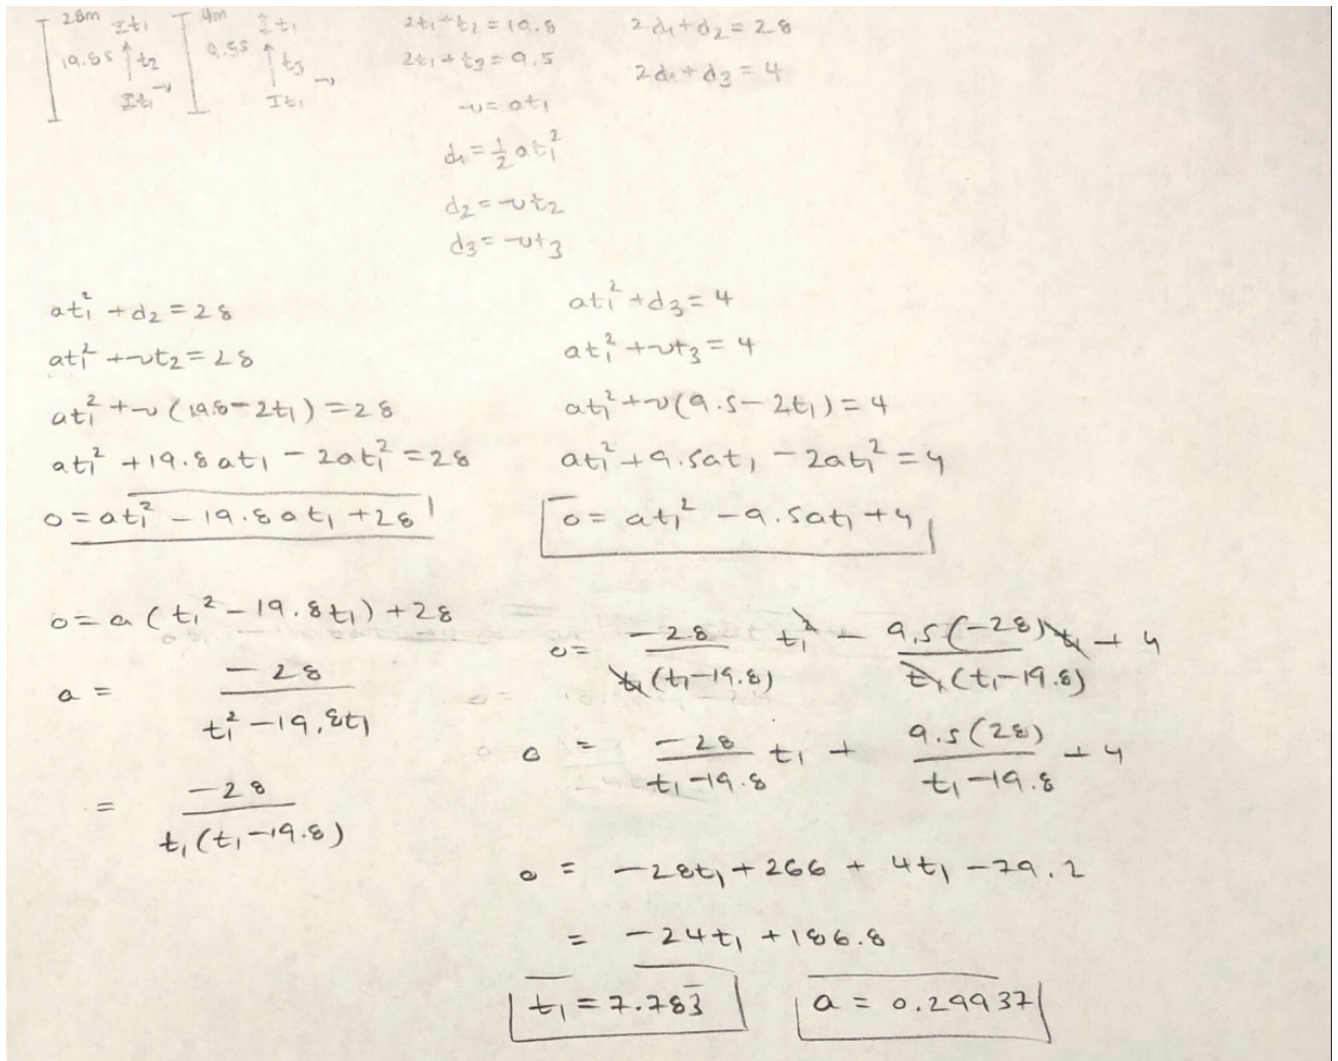 28m It₁ 4m It₁
19.8s t₂ 9.5s t₃
It₁ →v It₁ →v
2t₁+t₂ = 19.8 2d₁+d₂ = 28
2t₁+t₃ = 9.5 2d₁+d₃ = 4
v = at₁
d₁ = 1/2 at₁²
d₂ = vt₂
d₃ = vt₃
at₁² + d₂ = 28
at₁² + vt₂ = 28
at₁² + v(19.8-2t₁) = 28
at₁² + 19.8at₁ - 2at₁² = 28
0 = at₁² - 19.8at₁ + 28
at₁² + d₃ = 4
at₁² + vt₃ = 4
at₁² + v(9.5-2t₁) = 4
at₁² + 9.5at₁ - 2at₁² = 4
0 = at₁² - 9.5at₁ + 4
0 = a(t₁² - 19.8t₁) + 28
a = -28 / (t₁² - 19.8t₁)
= -28 / t₁(t₁-19.8)
0 = -28 / t₁(t₁-19.8) t₁² - 9.5(-28)t₁ / t₁(t₁-19.8) + 4
0 = -28 / (t₁-19.8) t₁ + 9.5(28) / (t₁-19.8) + 4
0 = -28t₁ + 266 + 4t₁ - 79.2
= -24t₁ + 186.8
t₁ = 7.783̅ a = 0.29937